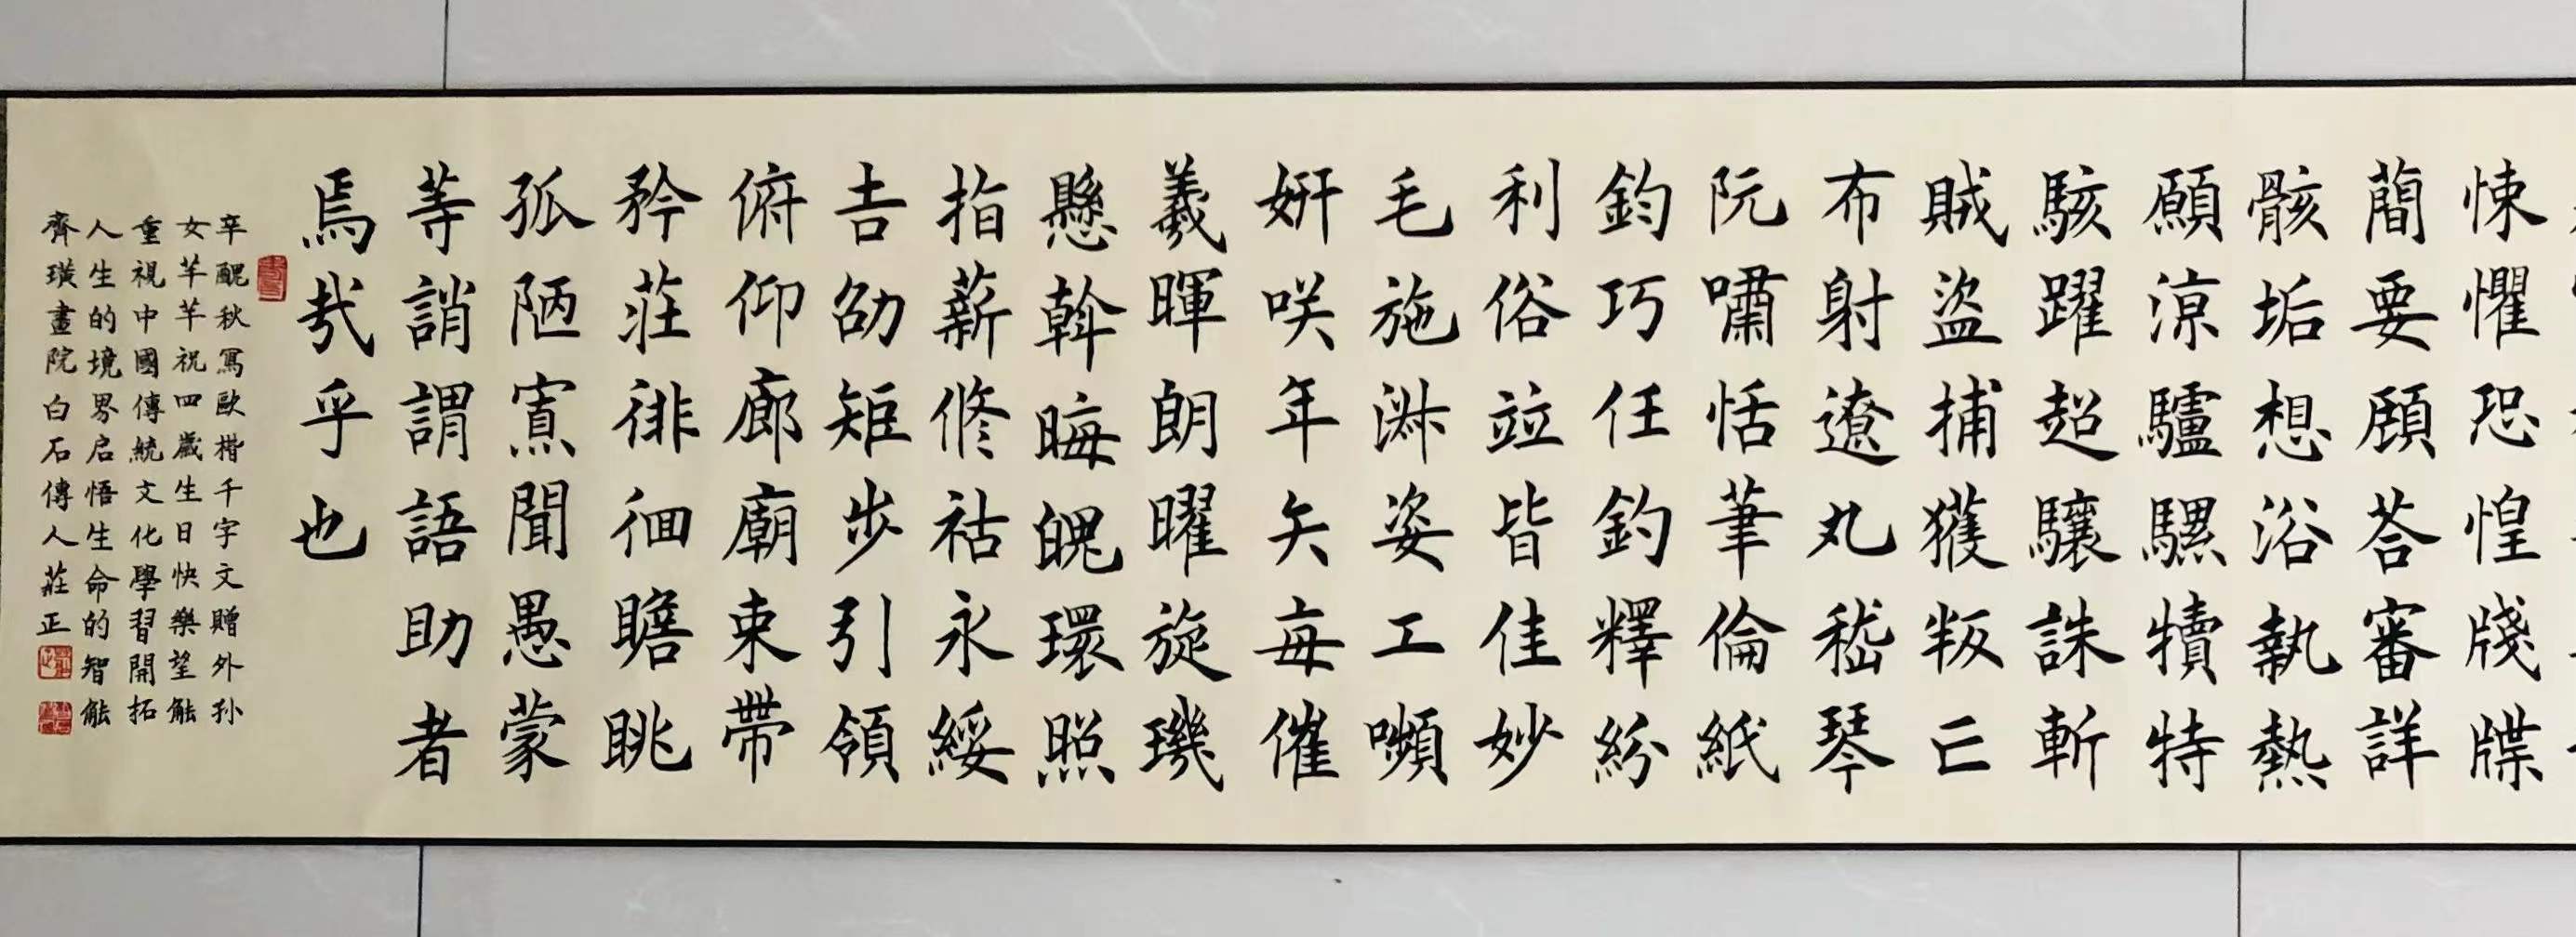 悚懼恐惶牋牒
蕳要顧荅審詳
骸垢想浴執熱
願涼驢騾犢特
駭躍超驤誅斬
賊盜捕獲叛亡
布射遼丸嵇琴
阮嘯恬筆倫紙
鈞巧任釣釋紛
利俗竝皆佳妙
毛施淋姿工嚬
妍咲年矢每催
羲暉朗曜旋璣
懸斡晦魄環照
指薪脩祜永綏
吉劭矩步引領
俯仰廊廟束帶
矜莊徘徊瞻眺
孤陋寡聞愚蒙
等誚謂語助者
焉哉乎也
辛醜秋寫歐楷千字文贈外孙
女芊芊祝四歲生日快樂望能
重視中國傳統文化學習開拓
人生的境界启悟生命的智能
齊璜畫院白石傳人莊正